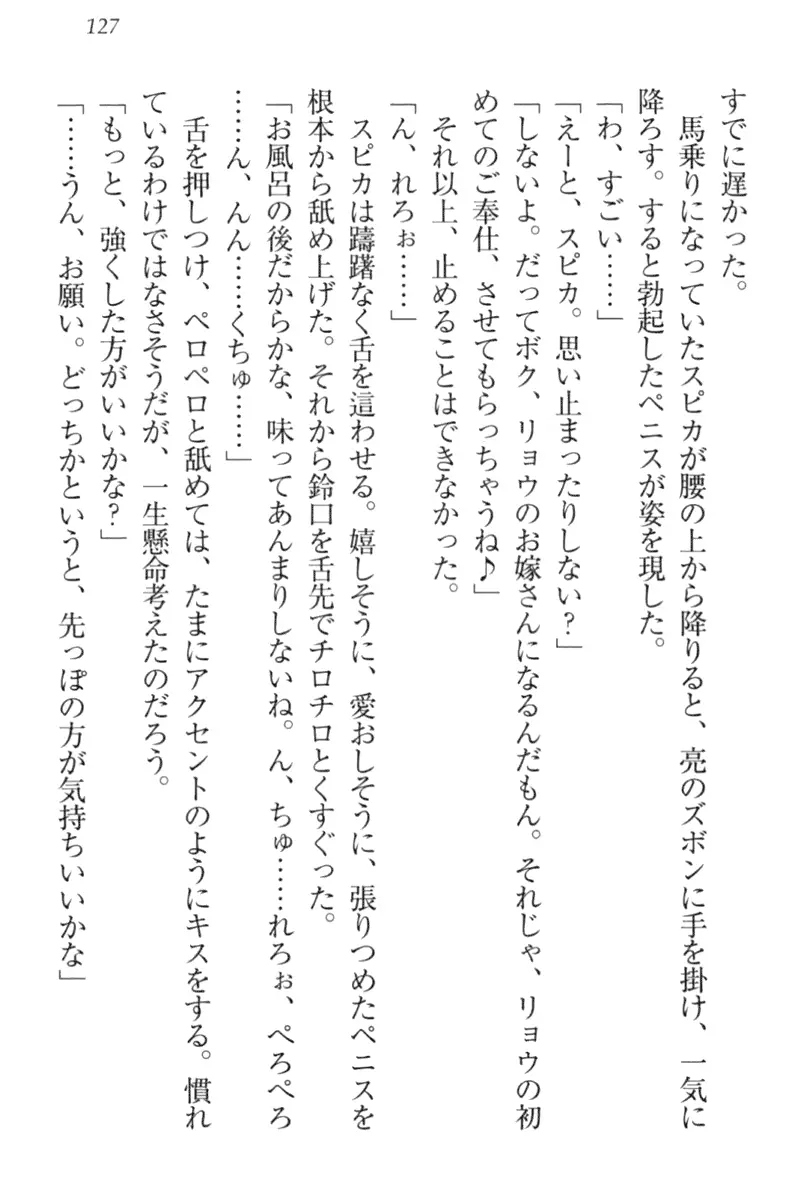 127
すでに遅かった。
　馬乗りになっていたスピカが腰の上から降りると、亮のズボンに手を掛け、一気に
降ろす。すると勃起したペニスが姿を現した。
「わ、すごい……」
「えーと、スピカ。思い止まったりしない？」
「しないよ。だってボク、リョウのお嫁さんになるんだもん。それじゃ、リョウの初
めてのご奉仕、させてもらっちゃうね♪」
　それ以上、止めることはできなかった。
「ん、れろぉ……」
　スピカは躊躇なく舌を這わせる。嬉しそうに、愛おしそうに、張りつめたペニスを
根本から舐め上げた。それから鈴口を舌先でチロチロとくすぐった。
「お風呂の後だからかな、味ってあんまりしないね。ん、ちゅ……れろぉ、ぺろぺろ
……ん、んん……くちゅ……」
　舌を押しつけ、ペロペロと舐めては、たまにアクセントのようにキスをする。慣れ
ているわけではなさそうだが、一生懸命考えたのだろう。
「もっと、強くした方がいいかな？」
「……うん、お願い。どっちかというと、先っぽの方が気持ちいいかな」